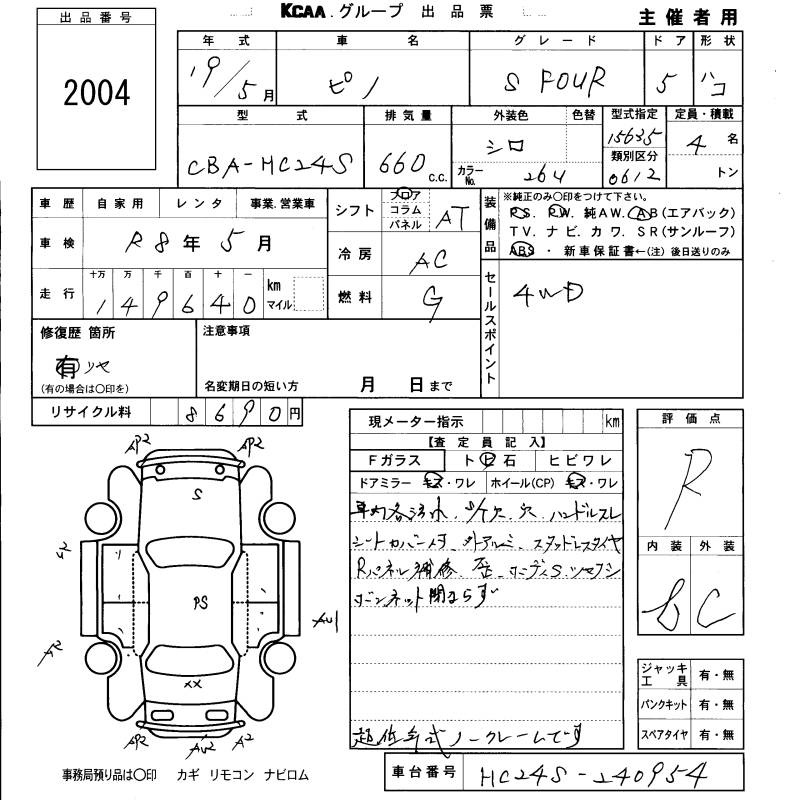 KCAA.グループ 出品票
主催者用
出品番号
2004
年式 車名 グレード ドア 形状
19/5月 ピノ S FOUR 5 ハコ
型式 排気量 外装色 色替 型式指定 定員・積載
CBA-HC24S 660 c.c. シロ カラーNo. 26U 15635 4名
類別区分 0612 トン
車歴 自家用 レンタ 事業.営業車
シフト フロア コラム パネル AT
装備品 ※純正のみ〇印をつけて下さい。
P.S. P.W. 純A.W. A.B(エアバック)
T.V. ナビ.カワ.S.R(サンルーフ)
ABS・新車保証書←(注)後日送りのみ
車検 R8年5月
冷房 AC
走行 十万 万 千 百 十 一 km マイル
149640
燃料 G
セールスポイント 4WD
修復歴 箇所
有 リヤ
(有の場合は〇印を)
注意事項
名変期日の短い方 月 日まで
リサイクル料 8690円
現メーター指示 km
【査定員記入】
Fガラス ト ビ 石 ヒビワレ
ドアミラー キズ・ワレ ホイール(CP) キズ・ワレ
車内各汚れ、S/T欠、穴、ハンドルスレ
シートカバー付、外アルミ、スタッドレスタイヤ
Rパネル補修、歪、ボディS.ツヤナシ
ボンネット閉まらず
超低年式ノークレームです
評価点
R
内装 外装
b C
AP2 AP2
S
A2
PS
AU1
A2
XX
AP2 AU2 A2
ジャッキ工具 有・無
パンクキット 有・無
スペアタイヤ 有・無
事務局預り品は〇印 カギ リモコン ナビロム
車台番号 HC24S-240954